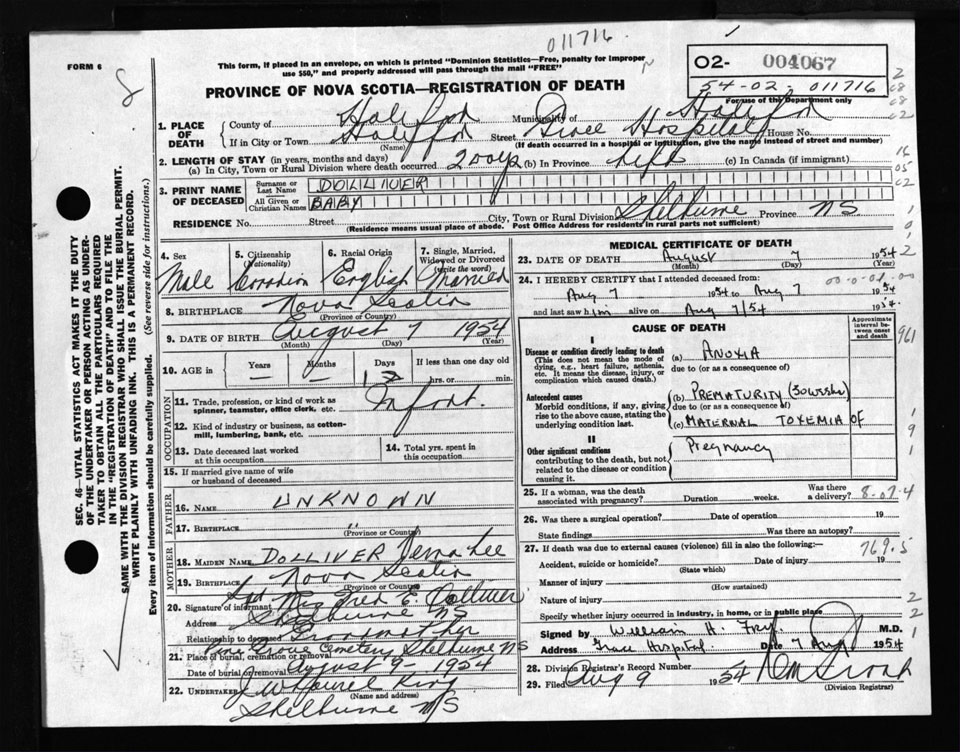 011716
FORM 6
8
This form, if placed in an envelope, on which is printed "Dominion Statistics—Free, penalty for improper
use $50," and properly addressed will pass through the mail "FREE"
02- 004067
54-02. 011716
For use of the Department only
PROVINCE OF NOVA SCOTIA—REGISTRATION OF DEATH
1. PLACE OF DEATH
County of Halifax Municipality of Halifax
If in City or Town Halifax Street Grace Hospital House No.
(Name) (If death occurred in a hospital or institution, give the name instead of street and number)
2. LENGTH OF STAY (in years, months and days)
(a) In City, Town or Rural Division where death occurred 2 days (b) In Province life (c) In Canada (if immigrant)
3. PRINT NAME OF DECEASED
Surname or Last Name DOLLIVER
All Given or Christian Names BABY
RESIDENCE No. Street City, Town or Rural Division Shelburne Province NS
(Residence means usual place of abode. Post Office Address for residents in rural parts not sufficient)
4. Sex Male
5. Citizenship (Nationality) Canadian
6. Racial Origin English
7. Single, Married, Widowed or Divorced (write the word) Married
8. BIRTHPLACE Nova Scotia
(Province or Country)
9. DATE OF BIRTH August 7 1954
(Month) (Day) (Year)
10. AGE in Years — Months — Days If less than one day old hrs. or min.
OCCUPATION
11. Trade, profession, or kind of work as spinner, teamster, office clerk, etc. Infant.
12. Kind of industry or business, as cotton-mill, lumbering, bank, etc.
13. Date deceased last worked at this occupation
14. Total yrs. spent in this occupation
15. If married give name of wife or husband of deceased
FATHER
16. NAME UNKNOWN
17. BIRTHPLACE "
(Province or Country)
MOTHER
18. MAIDEN NAME DOLLIVER Verna Lee
19. BIRTHPLACE Nova Scotia
(Province or Country)
20. Signature of informant Mrs Fred E. Dolliver
Address Shelburne NS
Relationship to deceased Grandmother
21. Place of burial, cremation or removal Pine Grove Cemetery Shelburne NS
Date of burial or removal August 9 - 1954
22. UNDERTAKER King
(Name and address)
Shelburne NS
MEDICAL CERTIFICATE OF DEATH
23. DATE OF DEATH August 7 1954
(Month) (Day) (Year)
24. I HEREBY CERTIFY that I attended deceased from:
Aug 7 1954 to Aug 7 1954
and last saw him alive on Aug 7/54 1954.
CAUSE OF DEATH
Approximate interval between onset and death
I
Disease or condition directly leading to death
(This does not mean the mode of dying, e.g., heart failure, asthenia, etc. It means the disease, injury, or complication which caused death.)
(a) ANOXIA
due to (or as a consequence of)
Antecedent causes
Morbid conditions, if any, giving rise to the above cause, stating the underlying condition last.
(b) PREMATURITY
due to (or as a consequence of)
(c) MATERNAL TOXEMIA OF
Pregnancy
II
Other significant conditions
contributing to the death, but not related to the disease or condition causing it.
961
25. If a woman, was the death associated with pregnancy? Duration weeks. Was there a delivery?
8-07-4
26. Was there a surgical operation? Date of operation 19
State findings Was there an autopsy?
27. If death was due to external causes (violence) fill in also the following:—
769.5
Accident, suicide or homicide? Date of injury 19
(State which)
Manner of injury
(How sustained)
Nature of injury
Specify whether injury occurred in industry, in home, or in public place
Signed by William H. Fry M.D.
Address Grace Hospital Date 7 Aug 1954
28. Division Registrar's Record Number
29. Filed Aug 9 1954
(Division Registrar)
SEC. 46—VITAL STATISTICS ACT MAKES IT THE DUTY
OF THE UNDERTAKER OR PERSON ACTING AS UNDER-
TAKER TO OBTAIN ALL THE PARTICULARS REQUIRED
IN THE "REGISTRATION OF DEATH" AND TO FILE THE
SAME WITH THE DIVISION REGISTRAR WHO SHALL ISSUE THE BURIAL PERMIT.
WRITE PLAINLY WITH UNFADING INK. THIS IS A PERMANENT RECORD.
Every item of information should be carefully supplied. (See reverse side for instructions.)